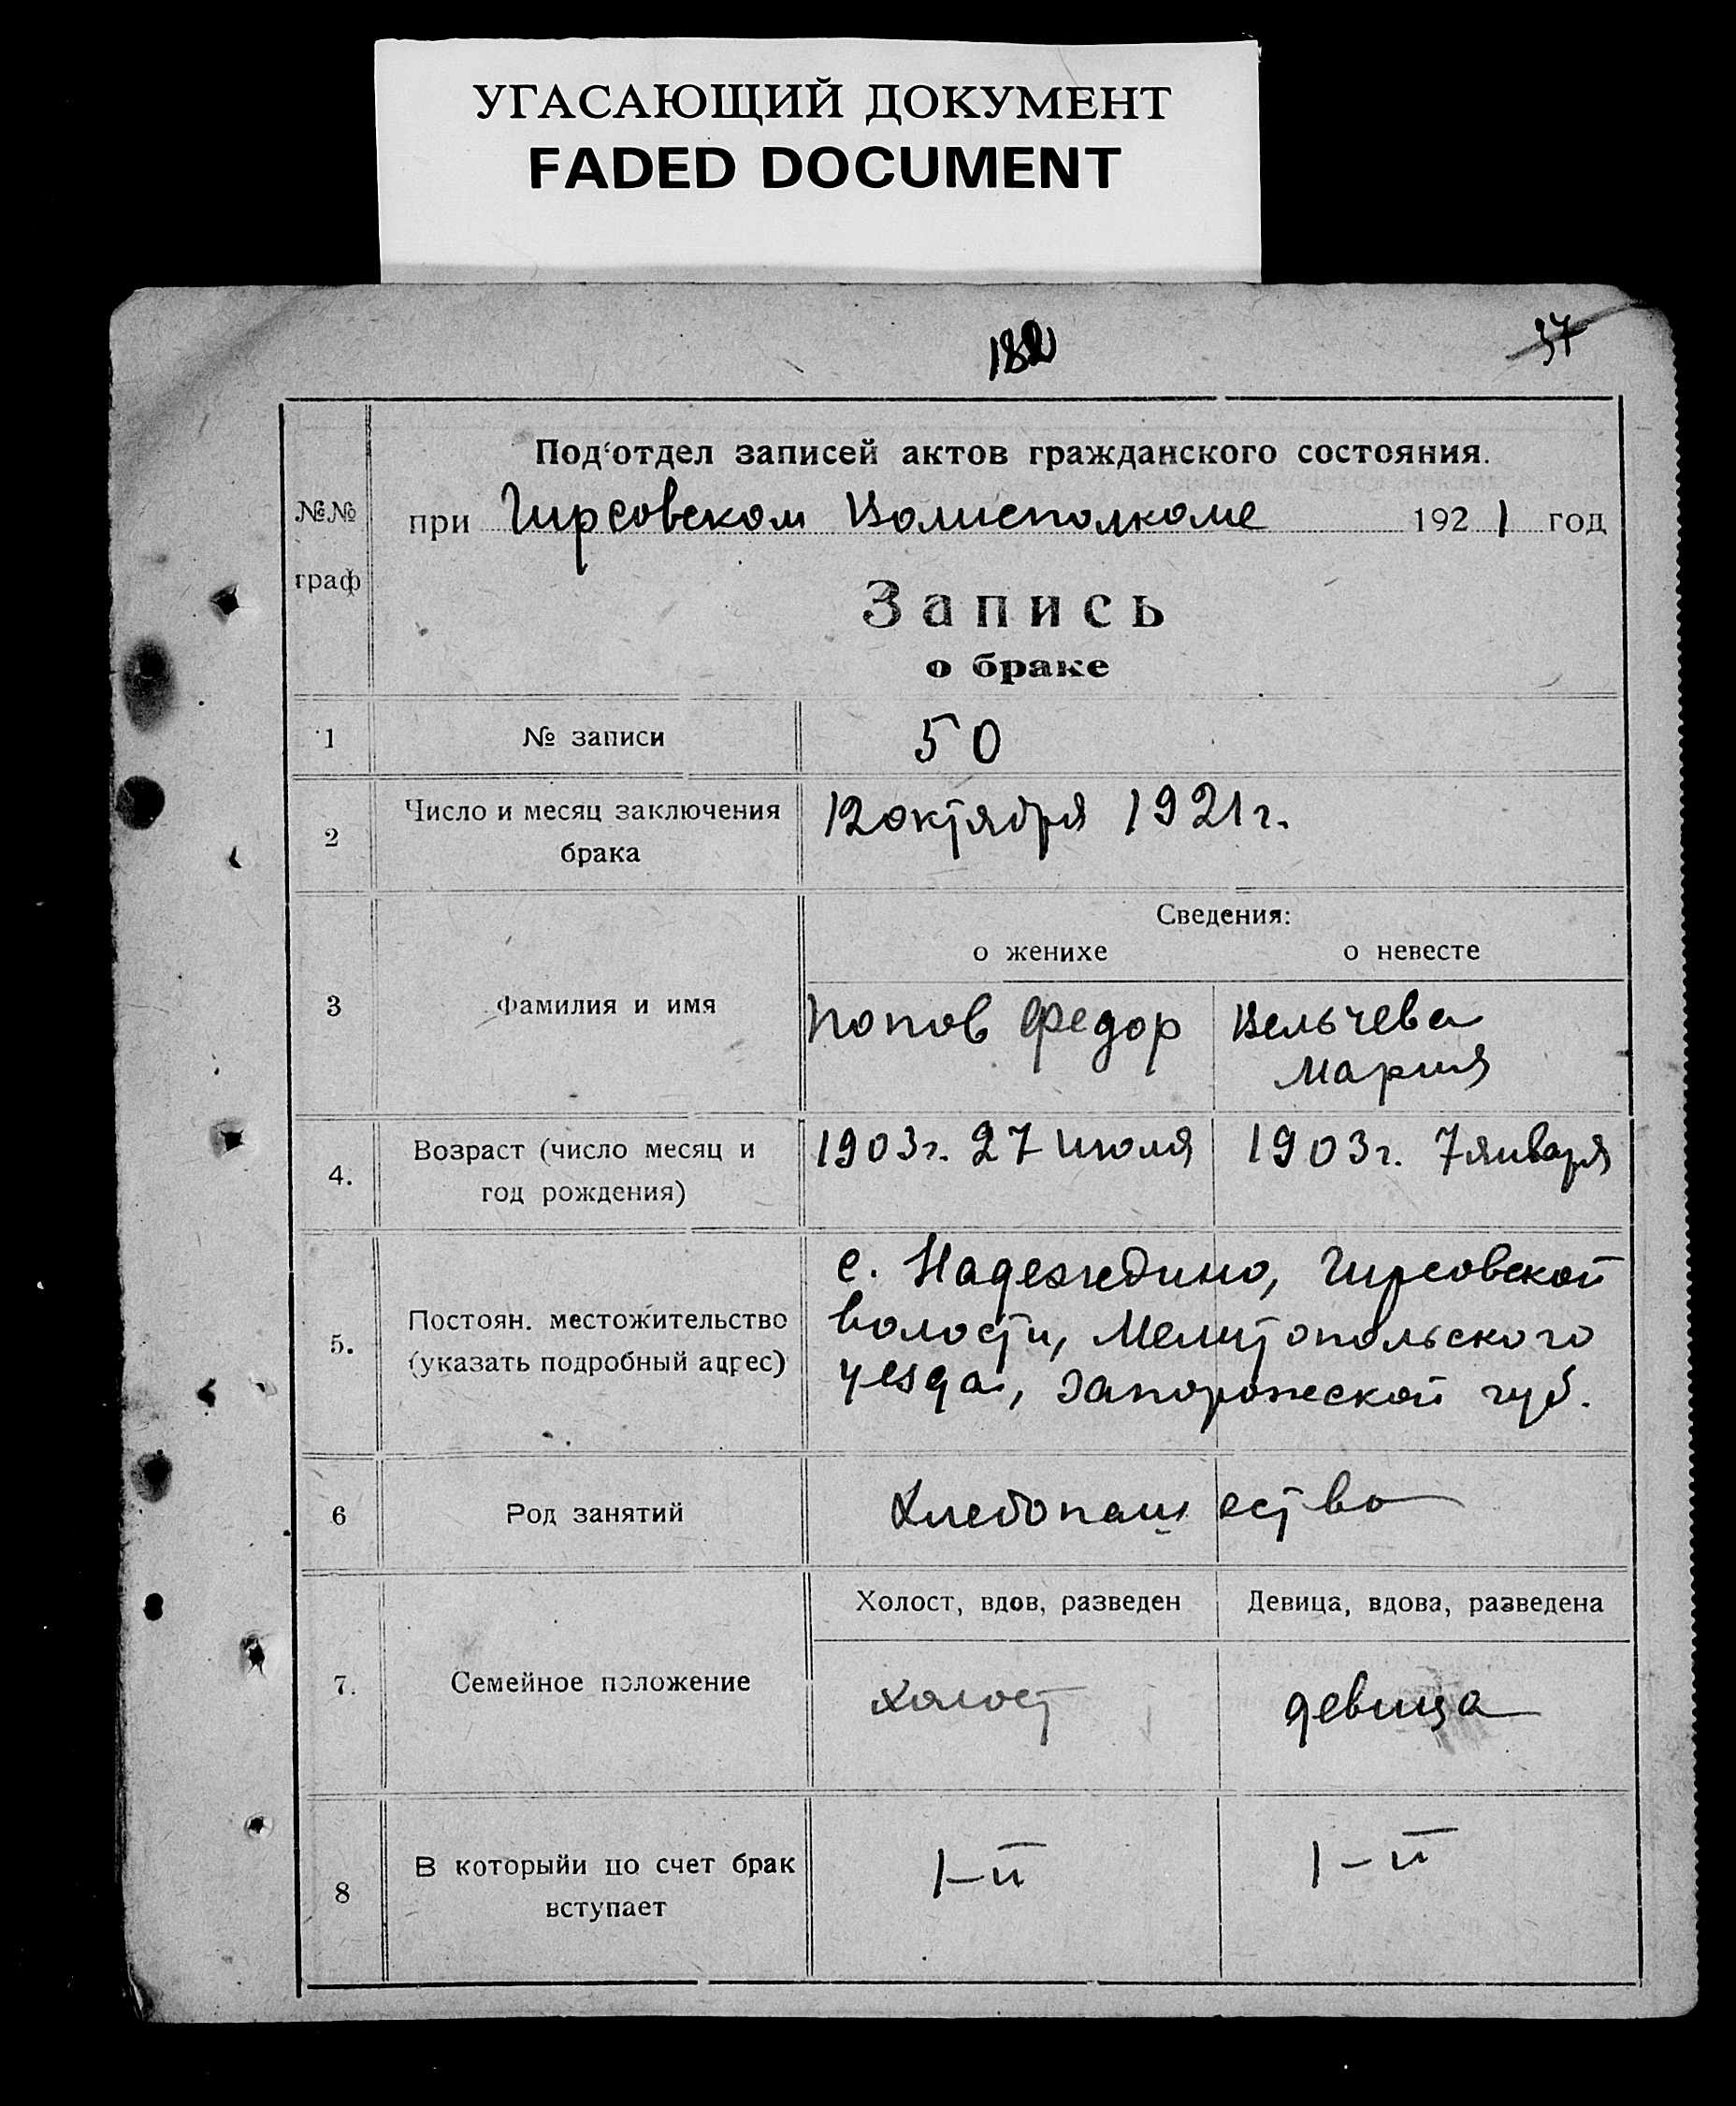 УГАСАЮЩИЙ ДОКУМЕНТ
FADED DOCUMENT
182
37
Под'отдел записей актов гражданского состояния.
№№ граф
при Гирсовском Волисполкоме 1921 год
Запись
о браке
1 № записи 50
2 Число и месяц заключения брака 12 октября 1921 г.
Сведения:
о женихе о невесте
3 Фамилия и имя Попов Федор Вельчева
Мария
4. Возраст (число месяц и год рождения) 1903 г. 27 июля 1903 г. 7 января
5. Постоян. местожительство (указать подробный адрес)
с. Надеждино, Гирсовской
волости, Мелитопольского
уезда, Запорожской губ.
6 Род занятий Хлебопашество
Холост, вдов, разведен Девица, вдова, разведена
7. Семейное положение холост девица
8 В которыйи по счет брак вступает 1-й 1-й